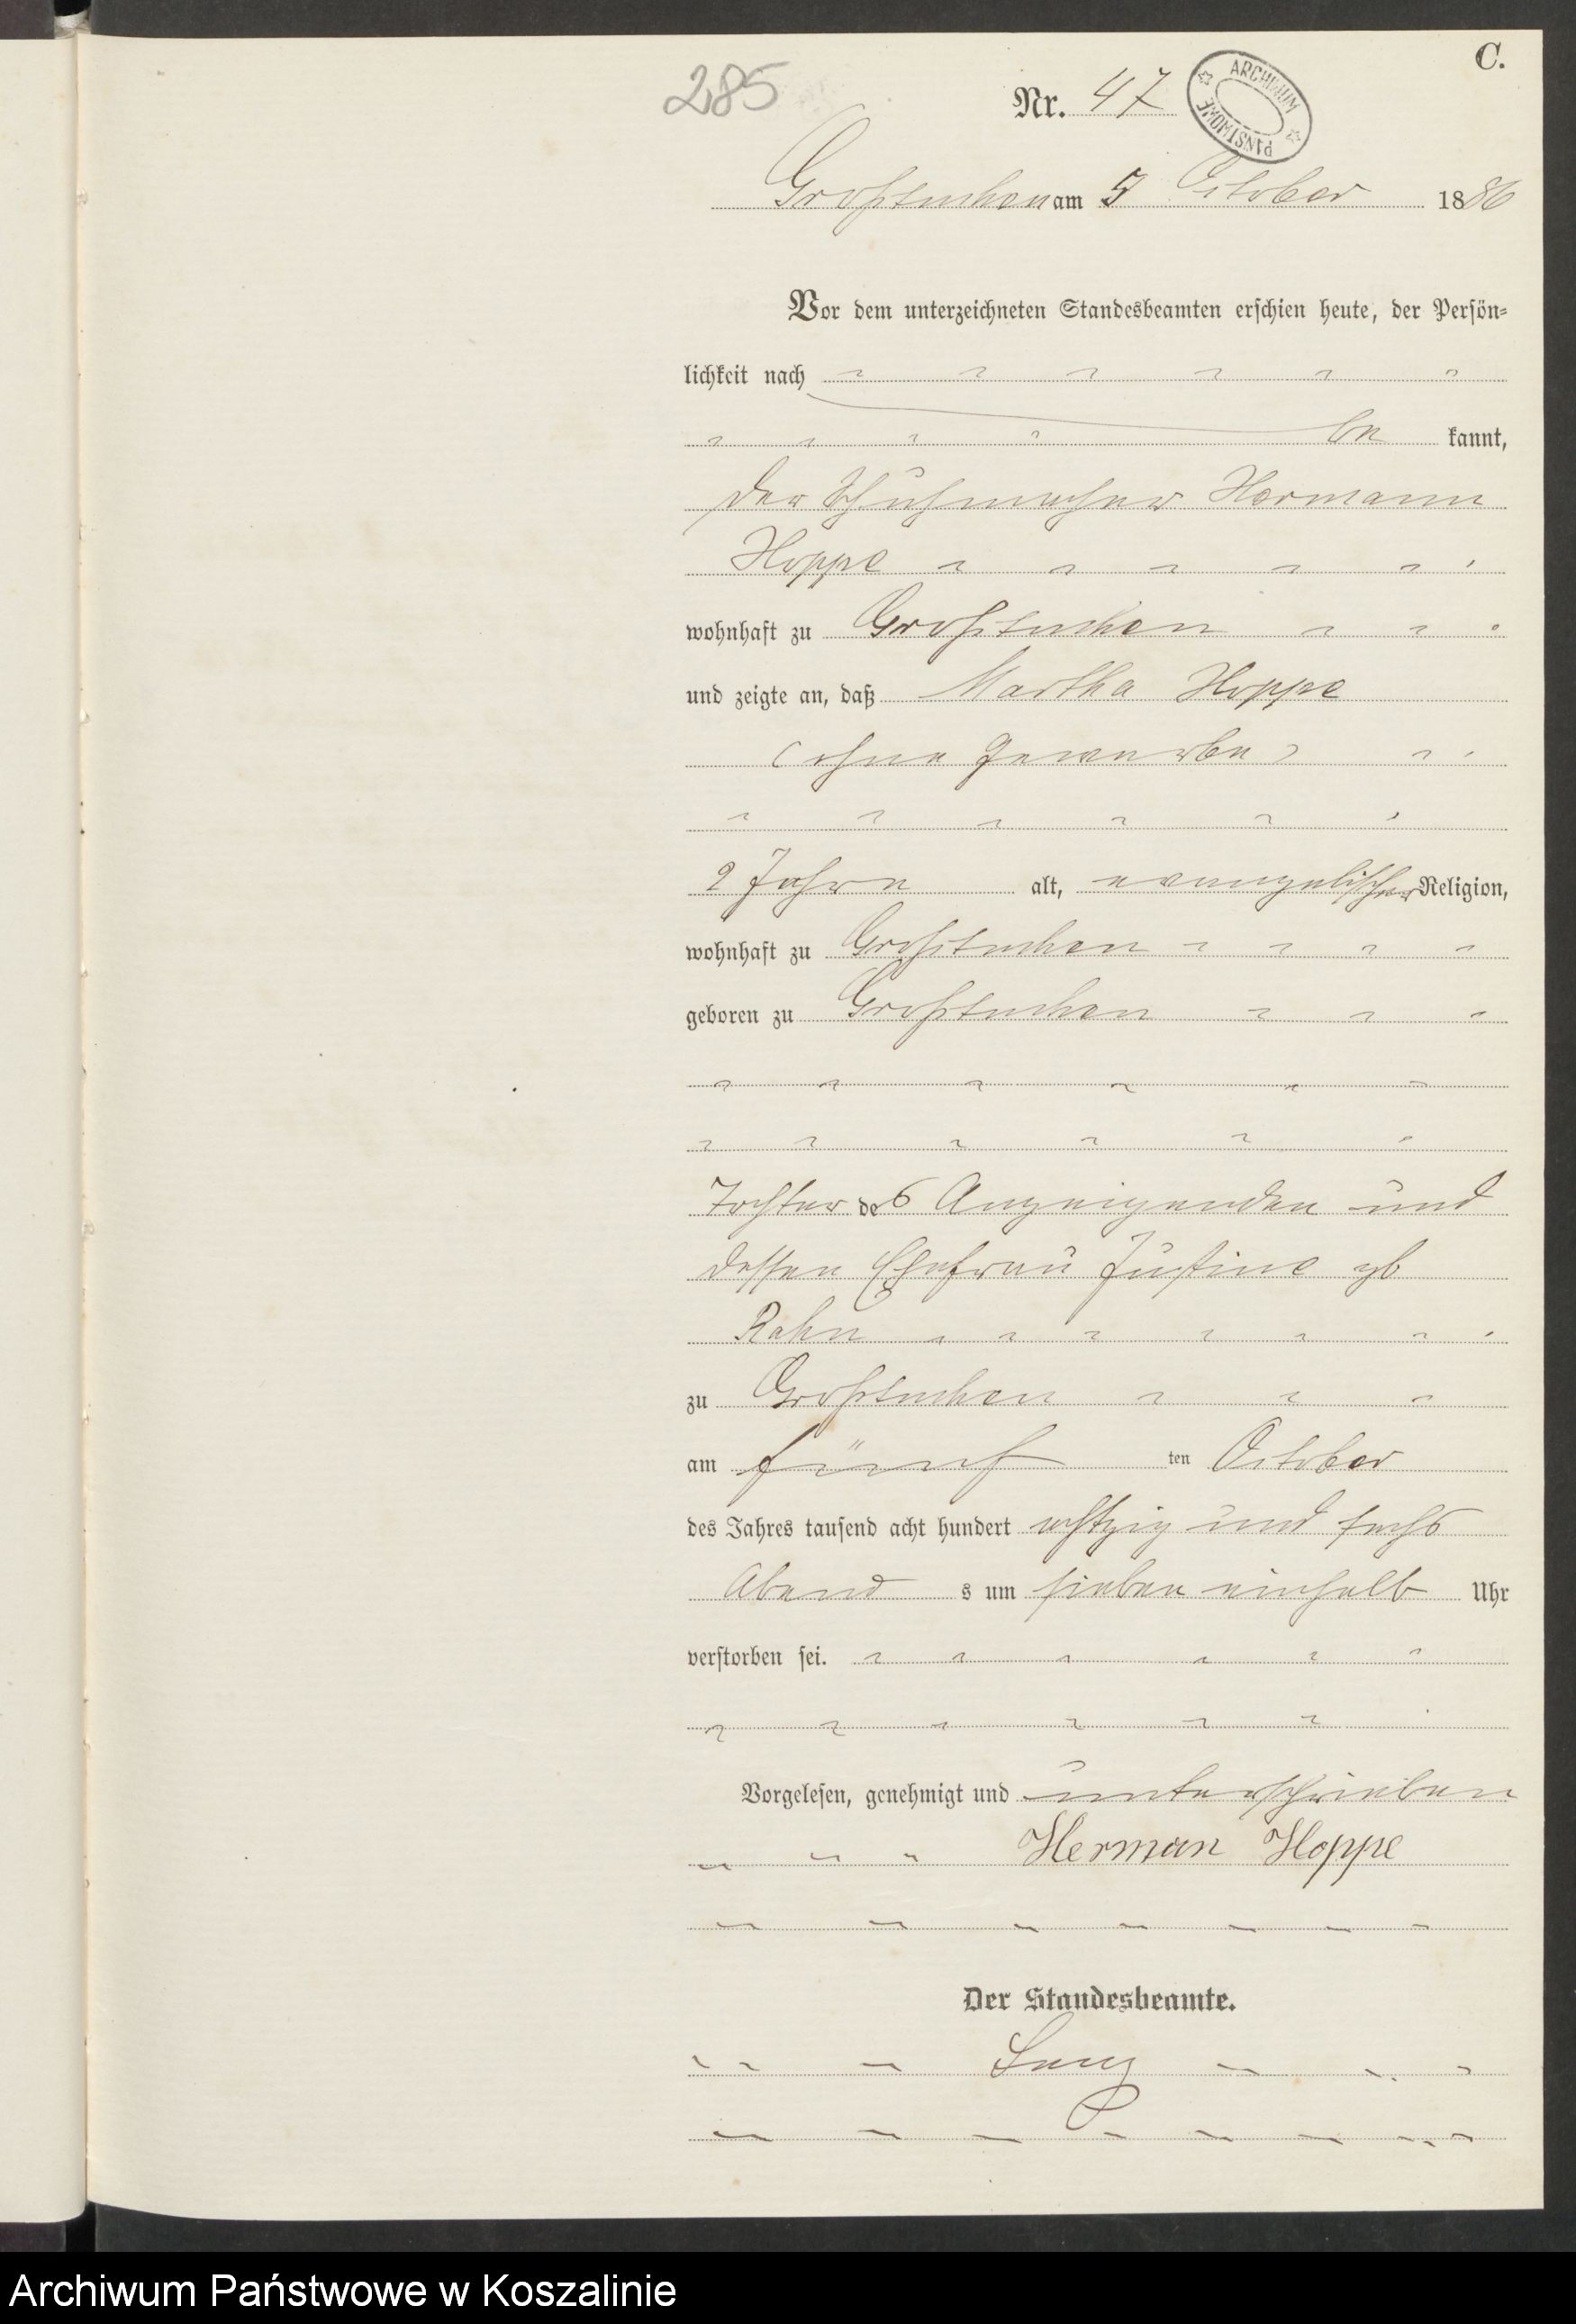 C.
285
Nr. 47
ARCHIWUM PAŃSTWOWE
Großtuchen am 5 October 1886
Vor dem unterzeichneten Standesbeamten erschien heute, der Persön-
lichkeit nach
be kannt,
der Schuhmacher Hermann
Hoppe
wohnhaft zu Großtuchen
und zeigte an, daß Martha Hoppe
(ohne Gewerbe)
2 Jahre alt, evangelischer Religion,
wohnhaft zu Großtuchen
geboren zu Großtuchen
Tochter des Anzeigenden und
dessen Ehefrau Justine gb
Rahn
zu Großtuchen
am fünf ten October
des Jahres tausend acht hundert achtzig und sechs
Abend s um sieben einhalb Uhr
verstorben sei.
Vorgelesen, genehmigt und unterschrieben
Herman Hoppe
Der Standesbeamte.
Archiwum Państwowe w Koszalinie